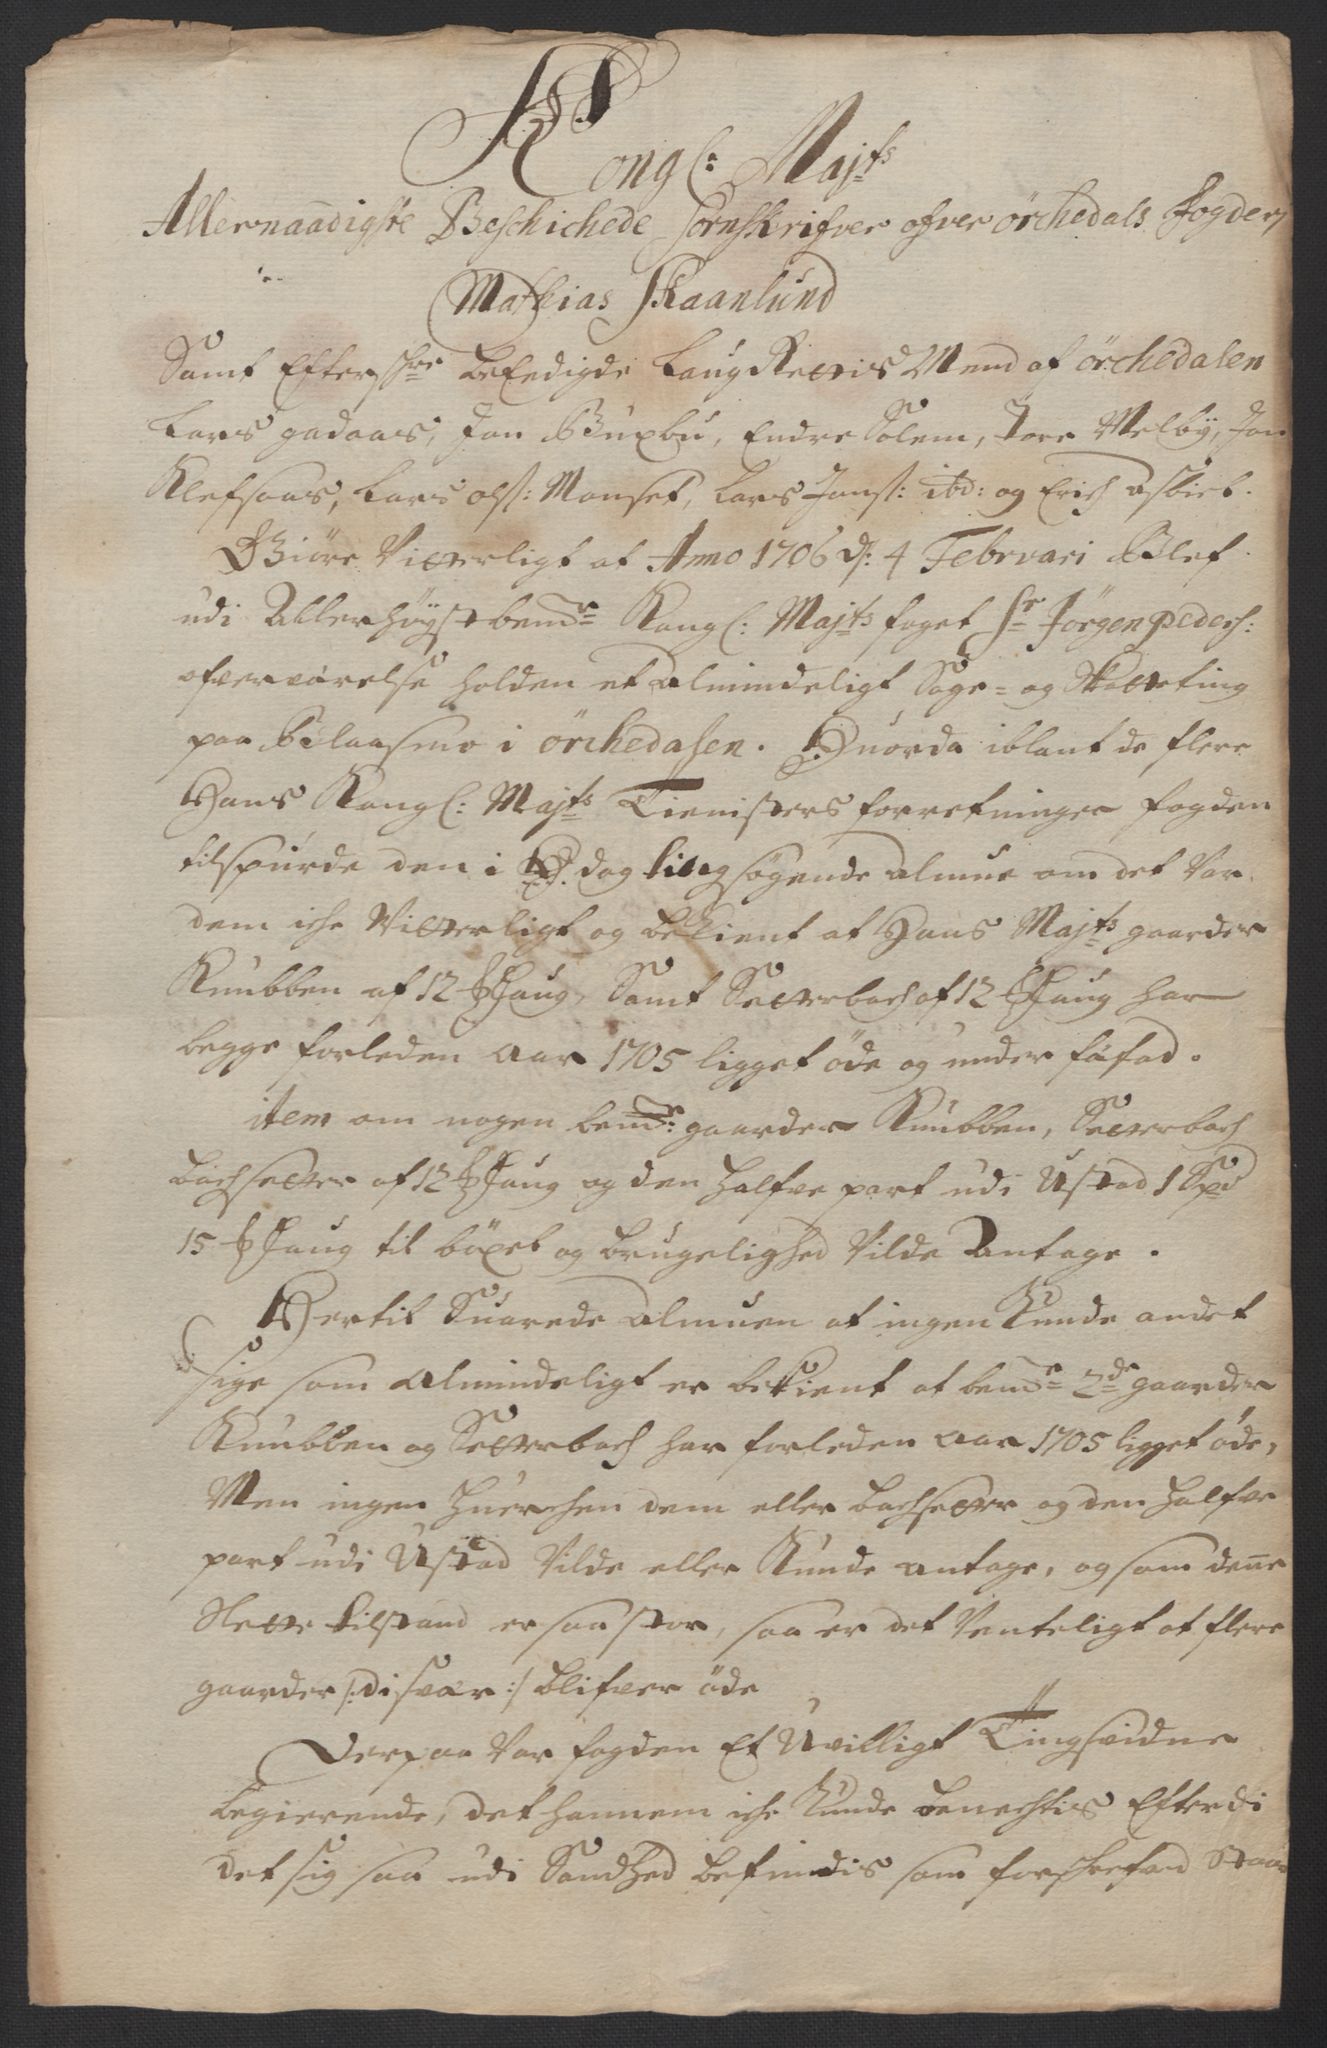 Kongl: Majts
Allernaadigste Beschichede Sornskrifver ofver örchedals Fogderj
Mathias Skaanlund
Samt Efterschne beEedigde Laug Rettis Mend af örchedalen
Lars gadaas, Jon Buxbu, Endre Solem, Tore Melbÿ, Jon
Klefsaas, Lars ols: Monset, Lars Jons: ibd: og Erich Asbiet.
Giöre Vitterligt at Anno 1706 d: 4 Februari Blef
udi Allerhöÿstbemte Kongl: Majts foget Sr Jörgen Peders:
ofverværelse holden et Almindeligt Sage- og Skatteting
paa Blaasmo i örchedalen. Huorda iblant de flere
Hans Kongl: Majts Tienisters forretninger fogden
tilspurde den i Dag tingsögende Almue om det Var
dem iche Vitterligt og beKient at Hans Majts gaarder
Knubben af 12 Haug, Samt Setterbach af 12 Haug har
begge forleden Aar 1705 ligget öde og under fäfod.
item om nogen bemte: gaarder Knubben, Setterbach
Bachsetter af 12 Haug og den halfve part udi Ustad 1 Spd
15 Haug til böxel og brugelighed Vilde Antage.
Hertil Suarede Almuen at ingen Kunde andet
sige som Almindeligt er beKient at bemte 2de gaarder
Knubben og Setterbach har forleden Aar 1705 ligget öde,
Men ingen huerchen dem eller Bachsetter og den halfve
part udi Ustad Vilde eller Kunde antage, og som denne
Slette tilstand er saa stor, saa er det Venteligt at flere
gaarder /: disvær :/ blifver öde
Derpaa Var fogden Et Uvilligt Tingsvidne
begierende, det hannem iche Kunde benechtis Efterdi
det sig saa udi Sandhed befindis som forschrefved Staar